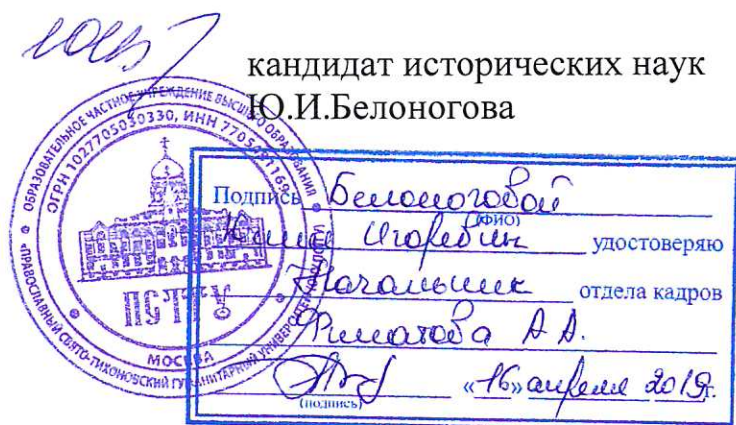 кандидат исторических наук
Ю.И.Белоногова
ОБРАЗОВАТЕЛЬНОЕ ЧАСТНОЕ УЧРЕЖДЕНИЕ ВЫСШЕГО ОБРАЗОВАНИЯ
«ПРАВОСЛАВНЫЙ СВЯТО-ТИХОНОВСКИЙ ГУМАНИТАРНЫЙ УНИВЕРСИТЕТ»
ОГРН 1027705030330, ИНН
ПСТГУ
МОСКВА
Подпись Белоноговой
(ФИО)
Юлии Игоревны удостоверяю
Начальник отдела кадров
Филатова А А.
(подпись)
«16» апреля 2019г.